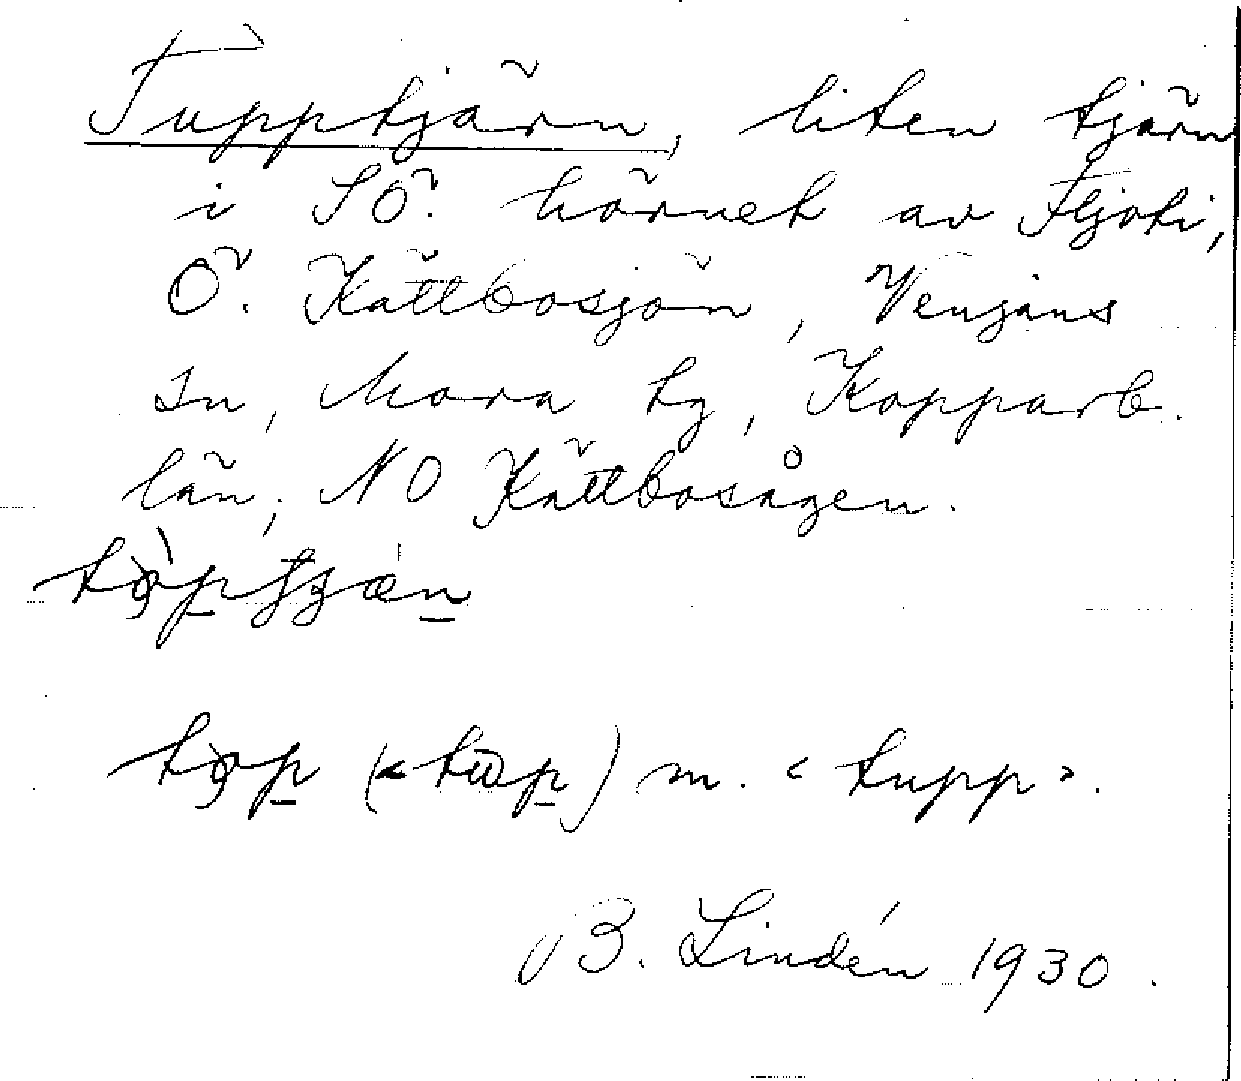 Tupptjärn, liten tjärn
i SÖ. hörnet av Fljoti,
Ö. Kättbosjön, Venjans
sn, Mora tg, Kopparb.
län; NO Kättbosågen.
m. < tupp >.
B. Lindén 1930.